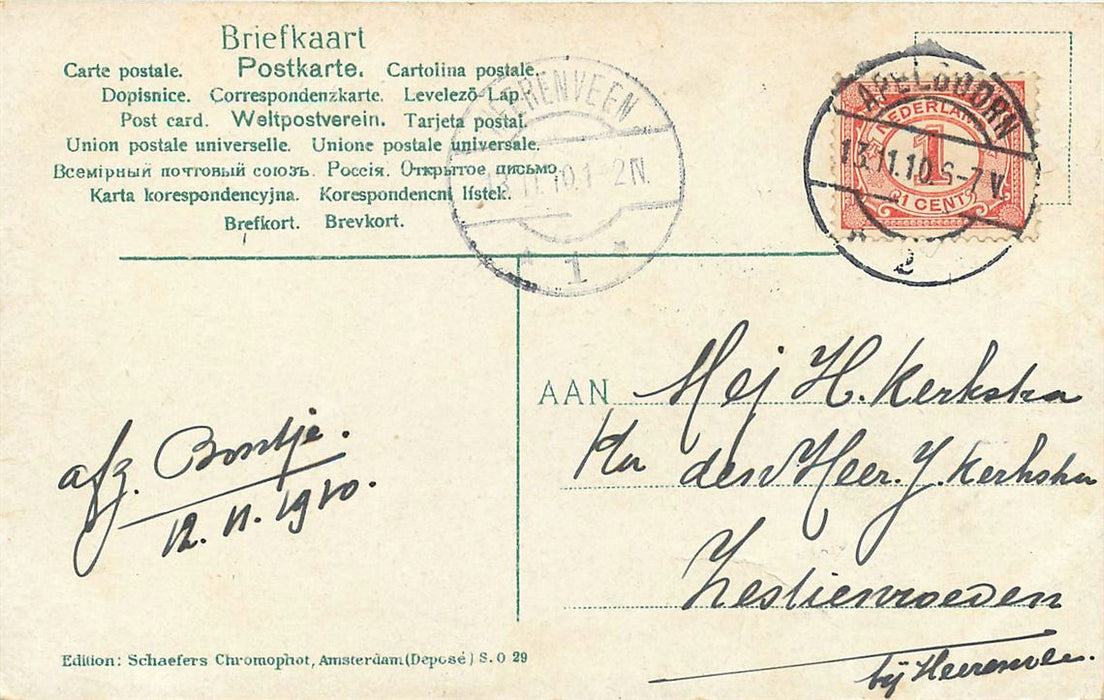 Briefkaart
Carte postale. Postkarte. Cartolina postale.
Dopisnice. Correspondenzkarte. Levelező-Lap.
Post card. Weltpostverein. Tarjeta postal.
Union postale universelle. Unione postale universale.
Всемірный почтовый союзъ. Россія. Открытое письмо.
Karta korespondencyjna. Korespondencni lístek.
Brefkort. Brevkort.
HEERENVEEN
13.11.10.1-2N.
1
APELDOORN
13.11.10.6-7V.
2
NEDERLAND
1
1 CENT
AAN Mej H. Kerkstra
den Heer J. Kerkstra
Zestienroeden
bij Heerenvee.
afz. Bontje.
12.11.1910.
Edition: Schaefers Chromophot, Amsterdam (Deposé) S. O 29